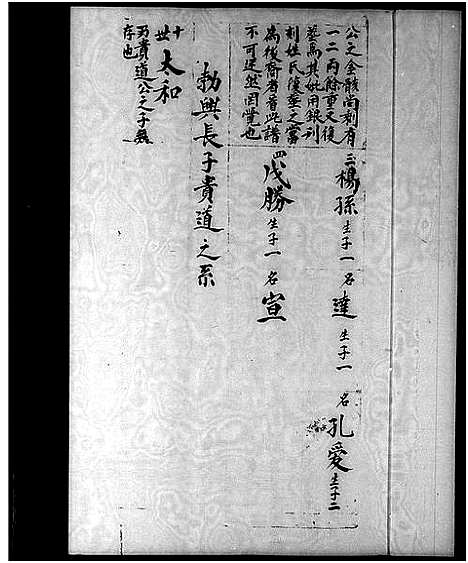 公之金骸尚剩有
一二兩餘重又復
葬焉其妣用銀列
刻姓氏復葬之當
為後裔者看此譜
不可迷然罔覺也
三楊孫生子一名達生子一名孔愛生子二
四戊勝生子一名宣
勃興長子貴道之系
十世太和
乃貴道公之子無
存也